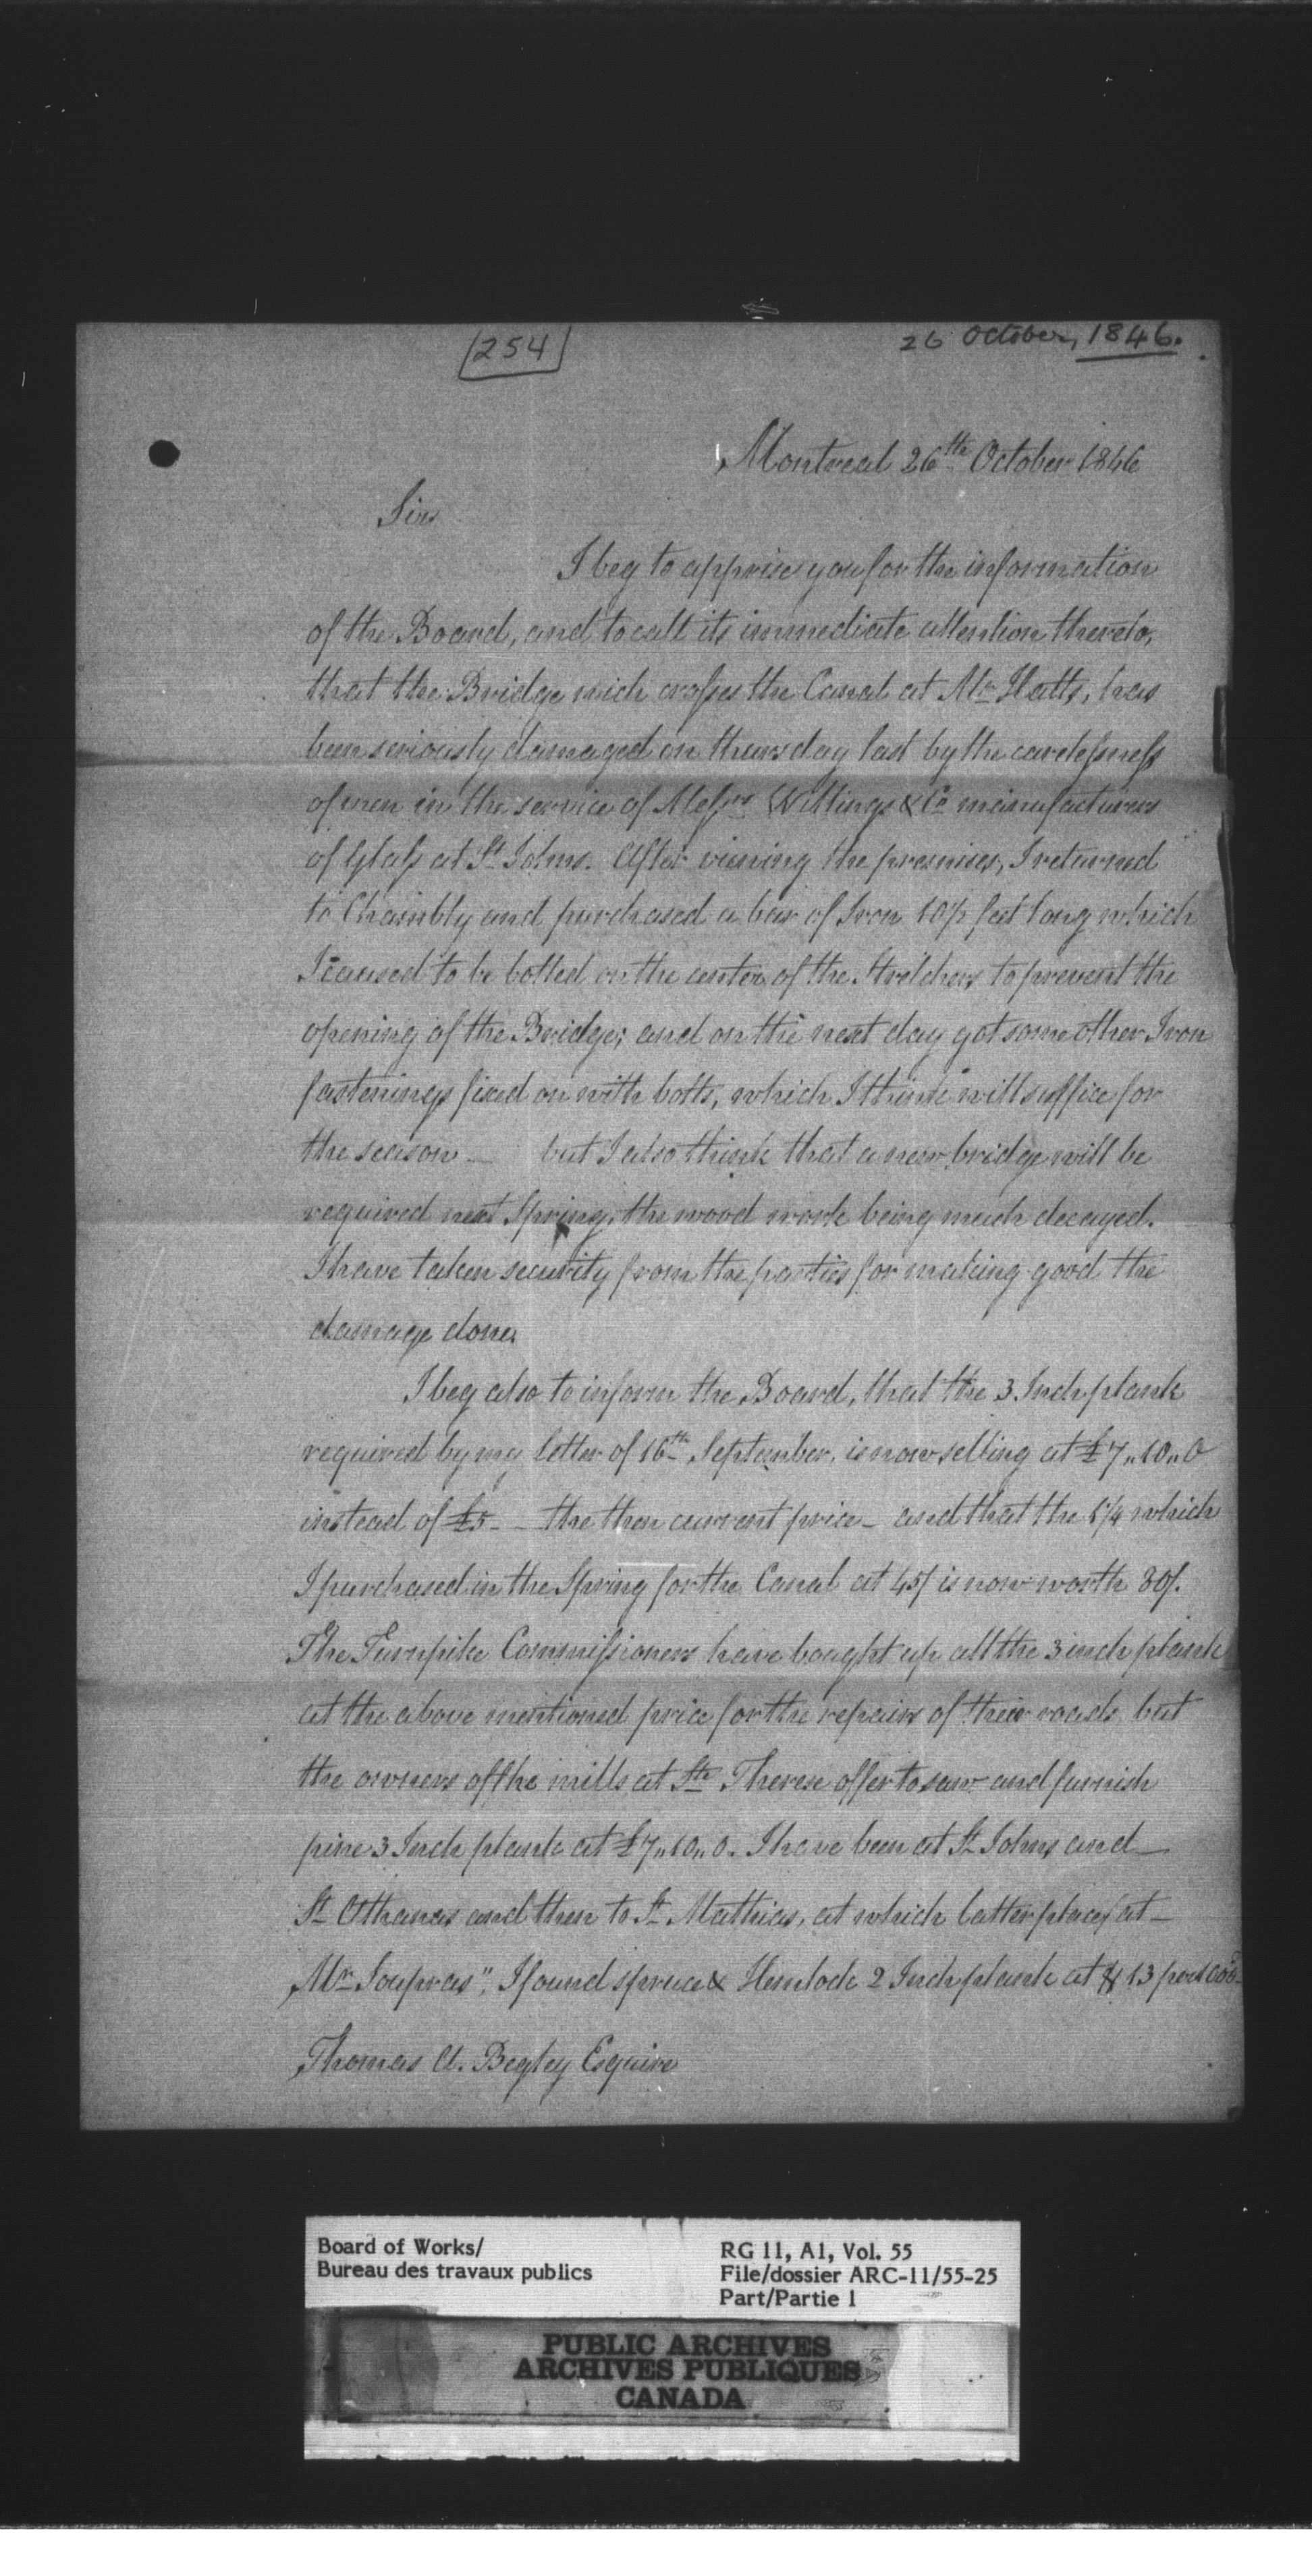 254
26 October, 1846.
Montreal 26th October 1846
Sir
I beg to apprise you for the information
of the Board, and to call its immediate attention thereto,
that the Bridge wich crosses the Canal at Mr Hatts, has
been seriously damaged on thursday last by the carelessness
of men in the service of Messrs Willings & Co manufacturers
of Glass at St Johns. After viewing the premises, I returned
to Chambly and purchased a bar of Iron 10½ feet long which
I caused to be bolted on the center of the Stretchers to prevent the
opening of the Bridge; and on the next day got some other Iron
fastenings fixed on with bolts, which I think will suffice for
the season — but I also think that a new bridge will be
required next Spring, the wood work being much decayed.
I have taken security from the parties for making good the
damage done.
I beg also to inform the Board, that the 3 Inch plank
required by my letter of 16th September, is now selling at £7,,10,,0
instead of £5 - - the then current price - and that the 1¼ which
I purchased in the Spring for the Canal at 45/ is now worth 80/.
The Turnpike Commissioners have bought up all the 3 inch plank
at the above mentioned price for the repairs of their roads but
the owners of the mills at Ste Therese offer to saw and furnish
pine 3 Inch plank at £7,,10,,0. I have been at St Johns and —
St Athanas and then to St Mathias, at which latter place, at —
Mr Soupras", I found spruce & Hemlock 2 Inch plank at $13 per
Thomas A. Begley Esquire
Board of Works/
Bureau des travaux publics
RG 11, A1, Vol. 55
File/dossier ARC-11/55-25
Part/Partie 1
PUBLIC ARCHIVES
ARCHIVES PUBLIQUES
CANADA